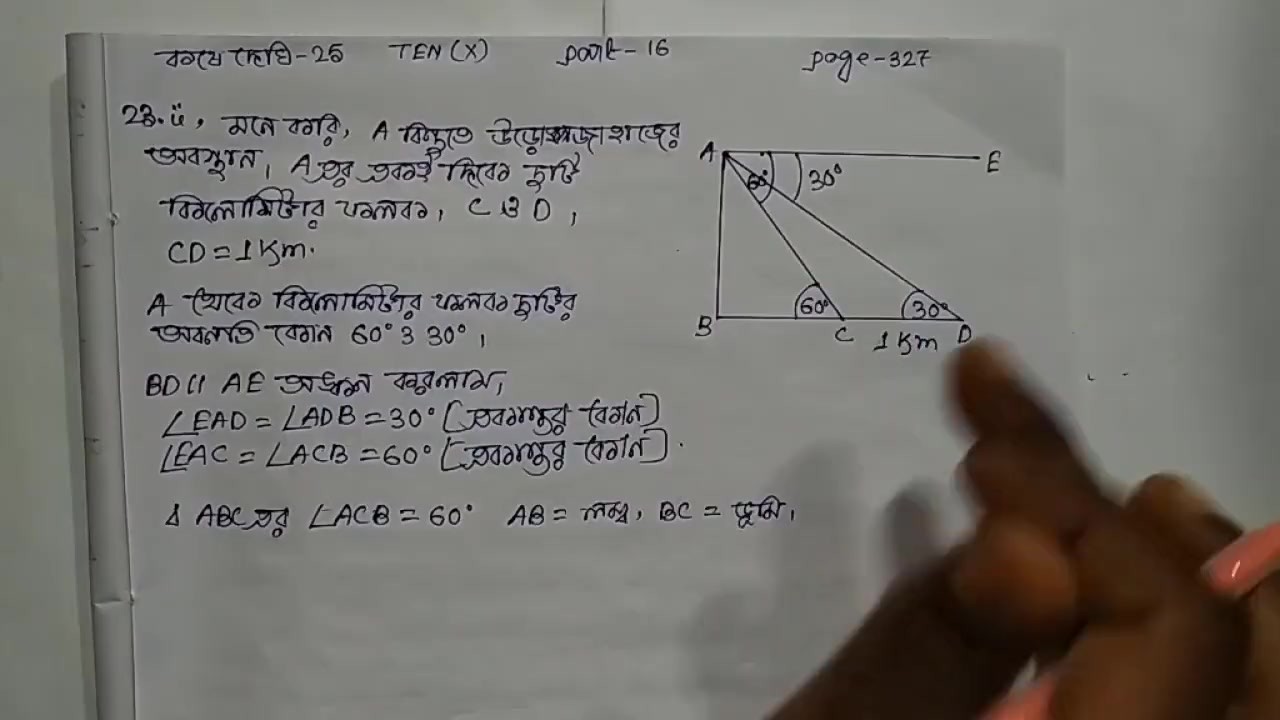 কষে দেখি-25 TEN (X) part-16 page-327
23.ii, মনে করি, A বিন্দুতে উড়োজাহাজের
অবস্থান। A এর একই দিকে দুটি
কিলোমিটার ফলক, C ও D,
CD = 1 Km.
A থেকে কিলোমিটার ফলক দুটির
অবনতি কোণ 60° ও 30°।
BD || AE অঙ্কন করলাম,
∠EAD = ∠ADB = 30° [একান্তর কোণ]
∠EAC = ∠ACB = 60° [একান্তর কোণ].
Δ ABC এর ∠ACB = 60° AB = লম্ব, BC = ভূমি,
A E
60° 30°
60° 30°
B C 1 Km D